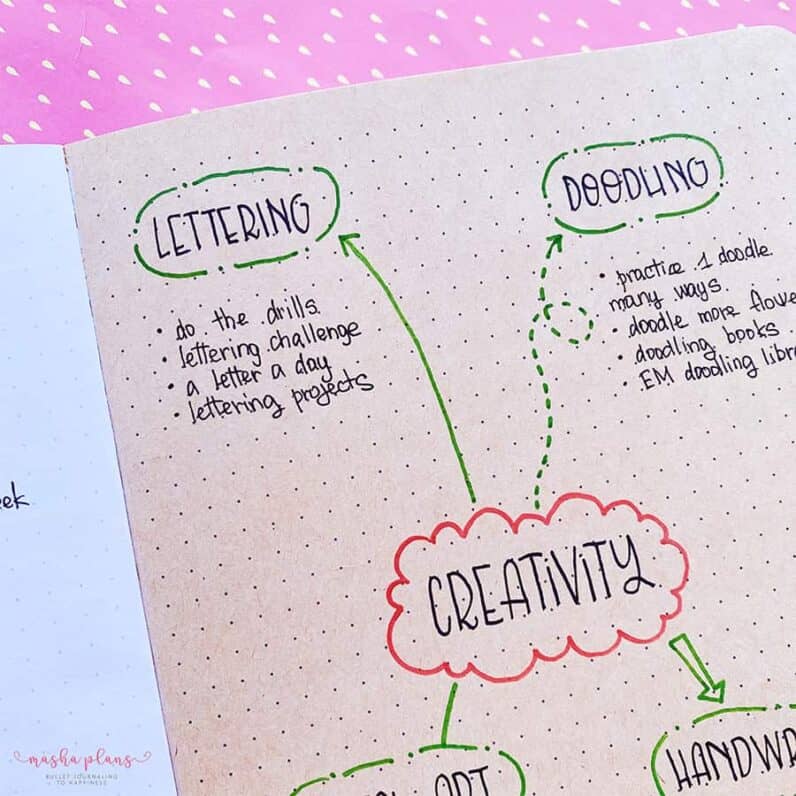 LETTERING
• do the drills.
• lettering challenge
• a letter a day
• lettering projects
DOODLING
• practice 1 doodle
many ways.
• doodle more
• doodling books
• EM doodling
CREATIVITY
ART
masha plans
BULLET JOURNALING
TO HAPPINESS